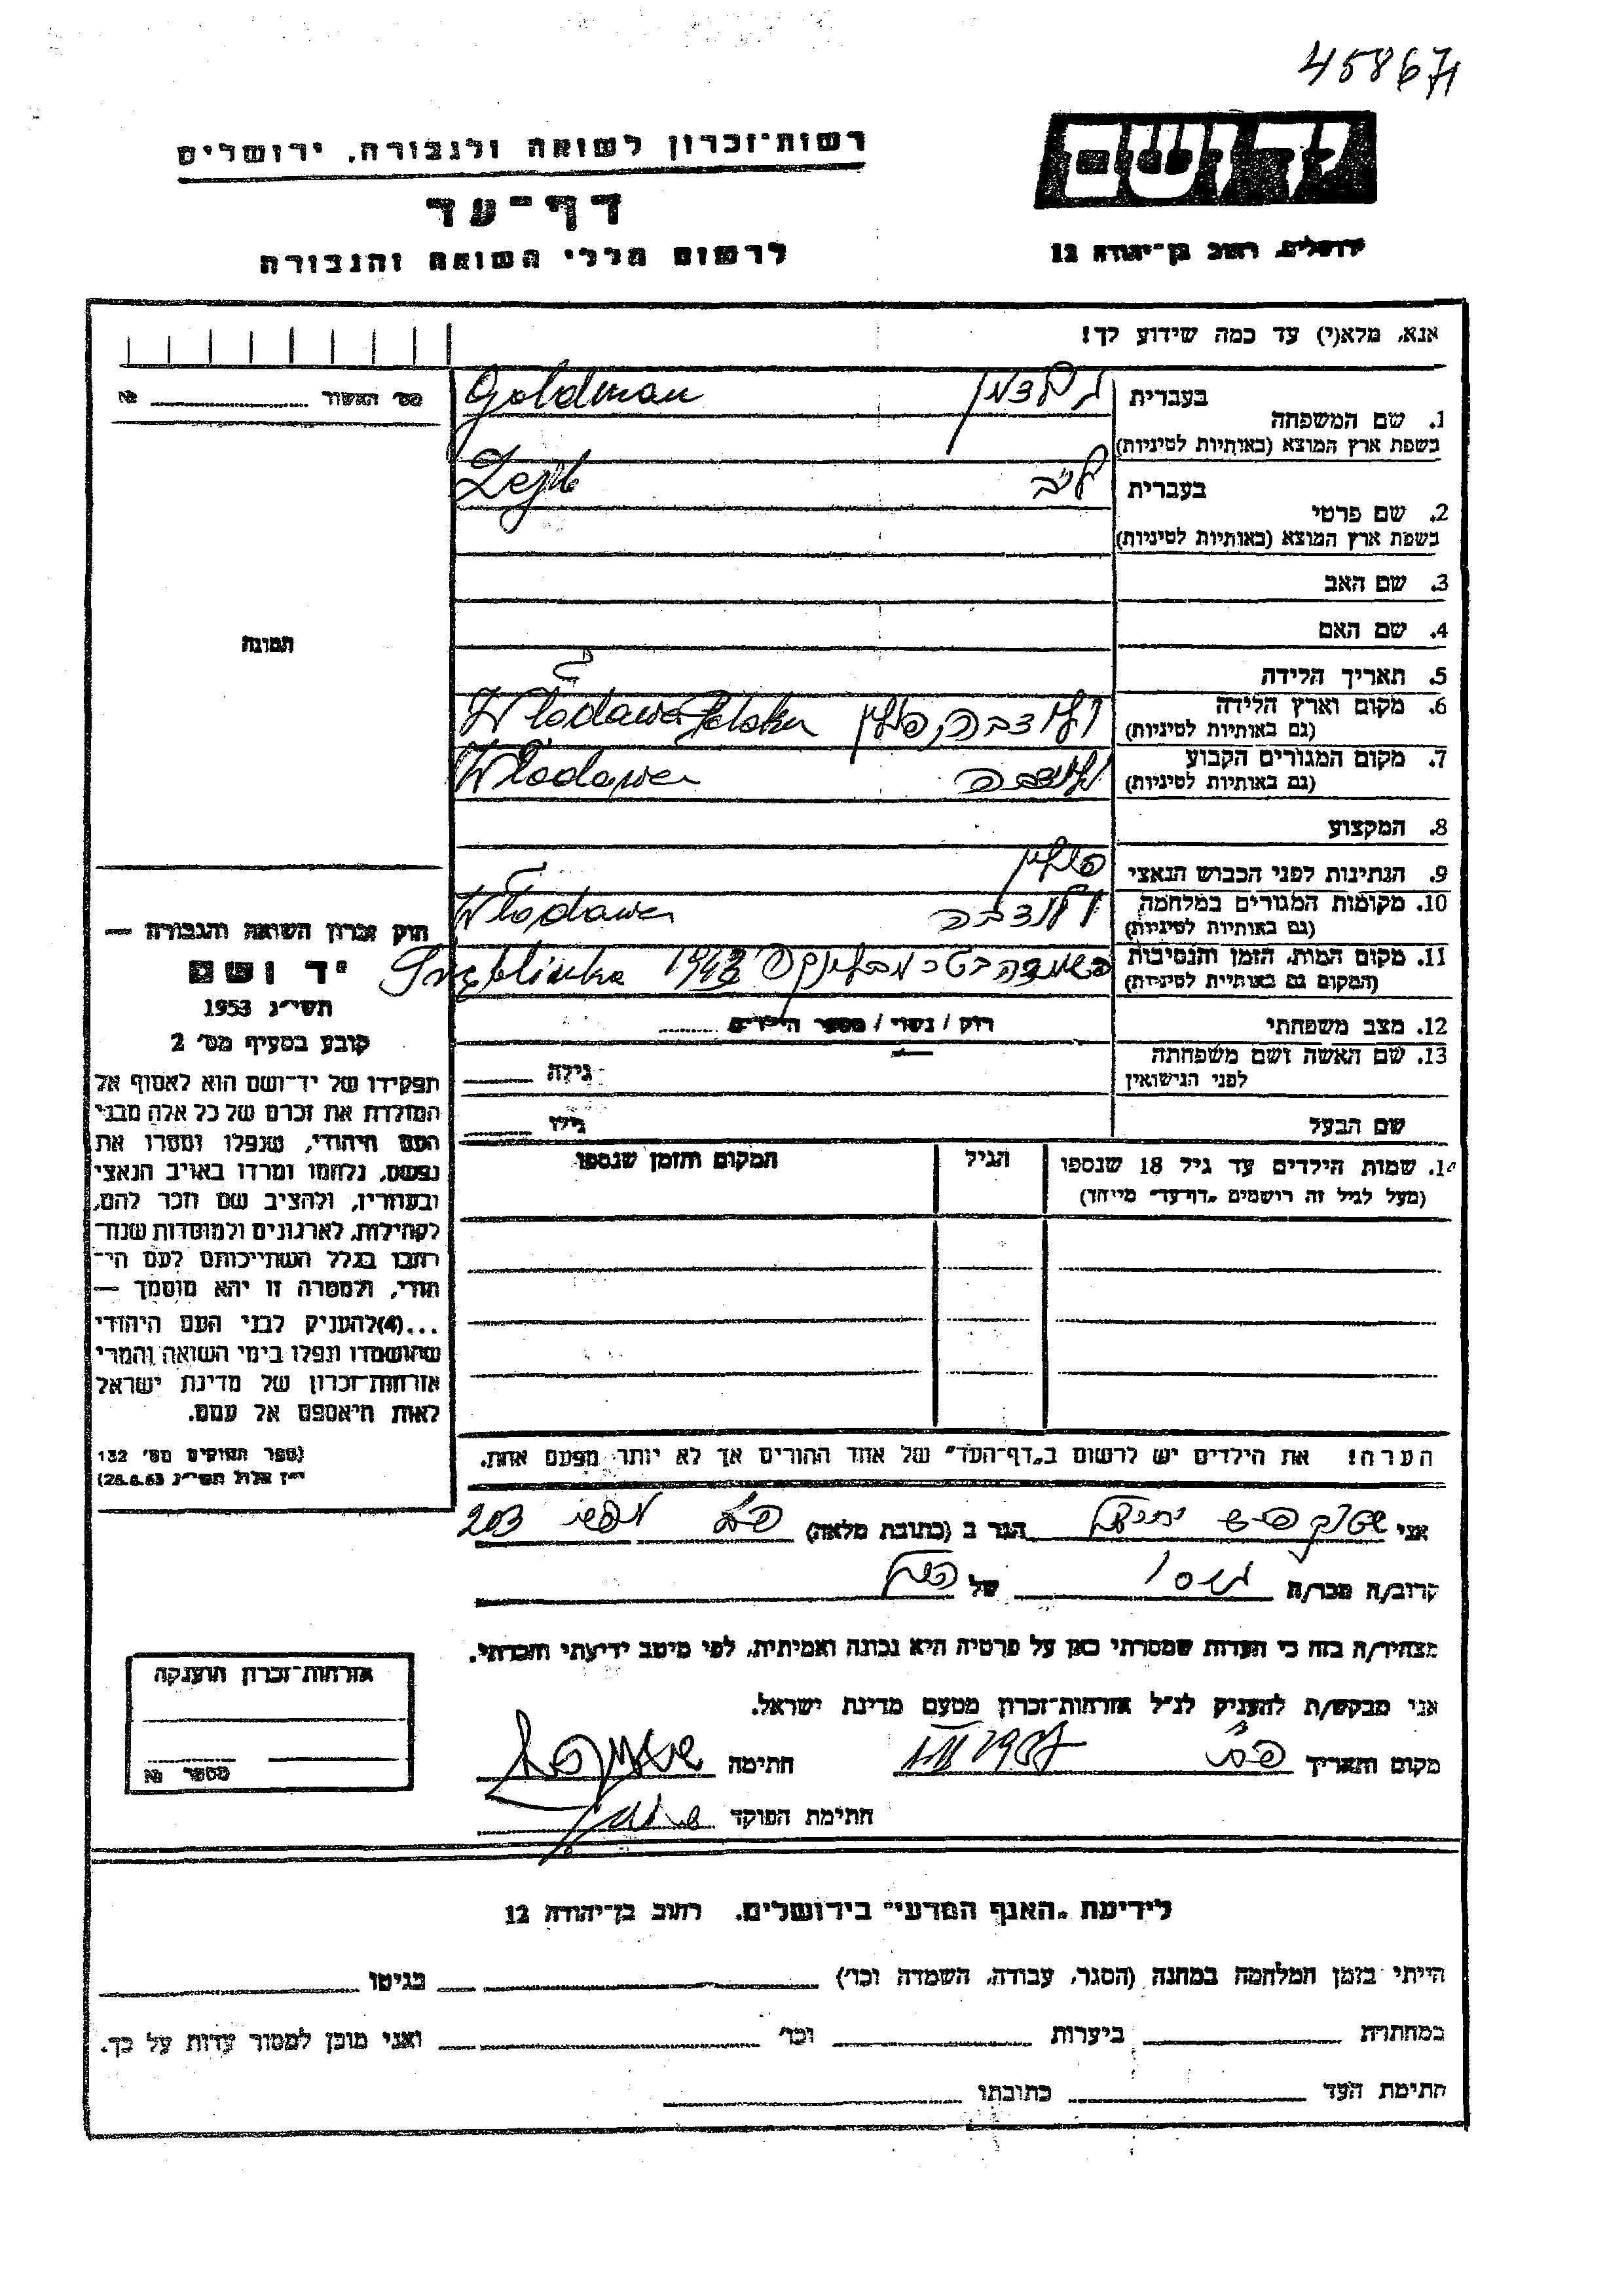 45867
רשות־זכרון לשואה ולגבורה, ירושלים
יד ושם
דף־עד
לרשום חללי השואה והגבורה
ירושלים, רחוב בן־יהודה 12
אנא, מלא(י) עד כמה שידוע לך!
מס' האשור № 
1. שם המשפחה בעברית גולדמן
בשפת ארץ המוצא (באותיות לטיניות) Goldman
2. שם פרטי בעברית לייב
בשפת ארץ המוצא (באותיות לטיניות) Lejb
3. שם האב
4. שם האם
תמונה
5. תאריך הלידה
6. מקום וארץ הלידה (גם באותיות לטיניות) ולודבה, פולין Włodawa Polska
7. מקום המגורים הקבוע (גם באותיות לטיניות) ולודבה Włodawa
8. המקצוע
9. הנתינות לפני הכבוש הנאצי פולין
10. מקומות המגורים במלחמה (גם באותיות לטיניות) ולודבה Włodawa
11. מקום המות, הזמן והנסיבות (המקום גם באותיות לטיניות) 
12. מצב משפחתי רווק / נשוי / מספר הילדים
13. שם האשה ושם משפחתה לפני הנישואין גילה
שם הבעל גילו
14. שמות הילדים עד גיל 18 שנספו (מעל לגיל זה רושמים "דף־עד" מיוחד) הגיל המקום והזמן שנספו
חוק זכרון השואה והגבורה —
יד ושם
תשי"ג 1953
קובע בסעיף מס' 2
תפקידו של יד־ושם הוא לאסוף אל
המולדת את זכרם של כל אלה מבני
העם היהודי, שנפלו ומסרו את
נפשם, נלחמו ומרדו באויב הנאצי
ובעוזריו, ולהציב שם וזכר להם,
לקהילות, לארגונים ולמוסדות שנח־
רבו בגלל השתייכותם לעם הי־
הודי, ולמטרה זו יהא מוסמך —
...(4) להעניק לבני העם היהודי
שהושמדו ונפלו בימי השואה והמרי
אזרחות־זכרון של מדינת ישראל
לאות היאספם אל עמם.
(ספר החוקים מס' 132
י"ז אלול תשי"ג 28.8.53)
הערה! את הילדים יש לרשום ב"דף־העד" של אחד ההורים אך לא יותר מפעם אחת.
אני הגר ב (כתובת מלאה) 203
קרוב/ה מכר/ה של
מצהיר/ה בזה כי העדות שמסרתי כאן על פרטיה היא נכונה ואמיתית, לפי מיטב ידיעתי והכרתי.
אני מבקש/ת להעניק לנ"ל אזרחות־זכרון מטעם מדינת ישראל.
מקום ותאריך 1957 חתימה
חתימת הפוקד
אזרחות־זכרון הוענקה
מספר №
לידיעת "האגף המדעי" בירושלים. רחוב בן־יהודה 12
הייתי בזמן המלחמה במחנה (הסגר, עבודה, השמדה וכו') בגיטו
במחתרת ביערות וכו' ואני מוכן למסור עדות על כך.
חתימת העד כתובתו